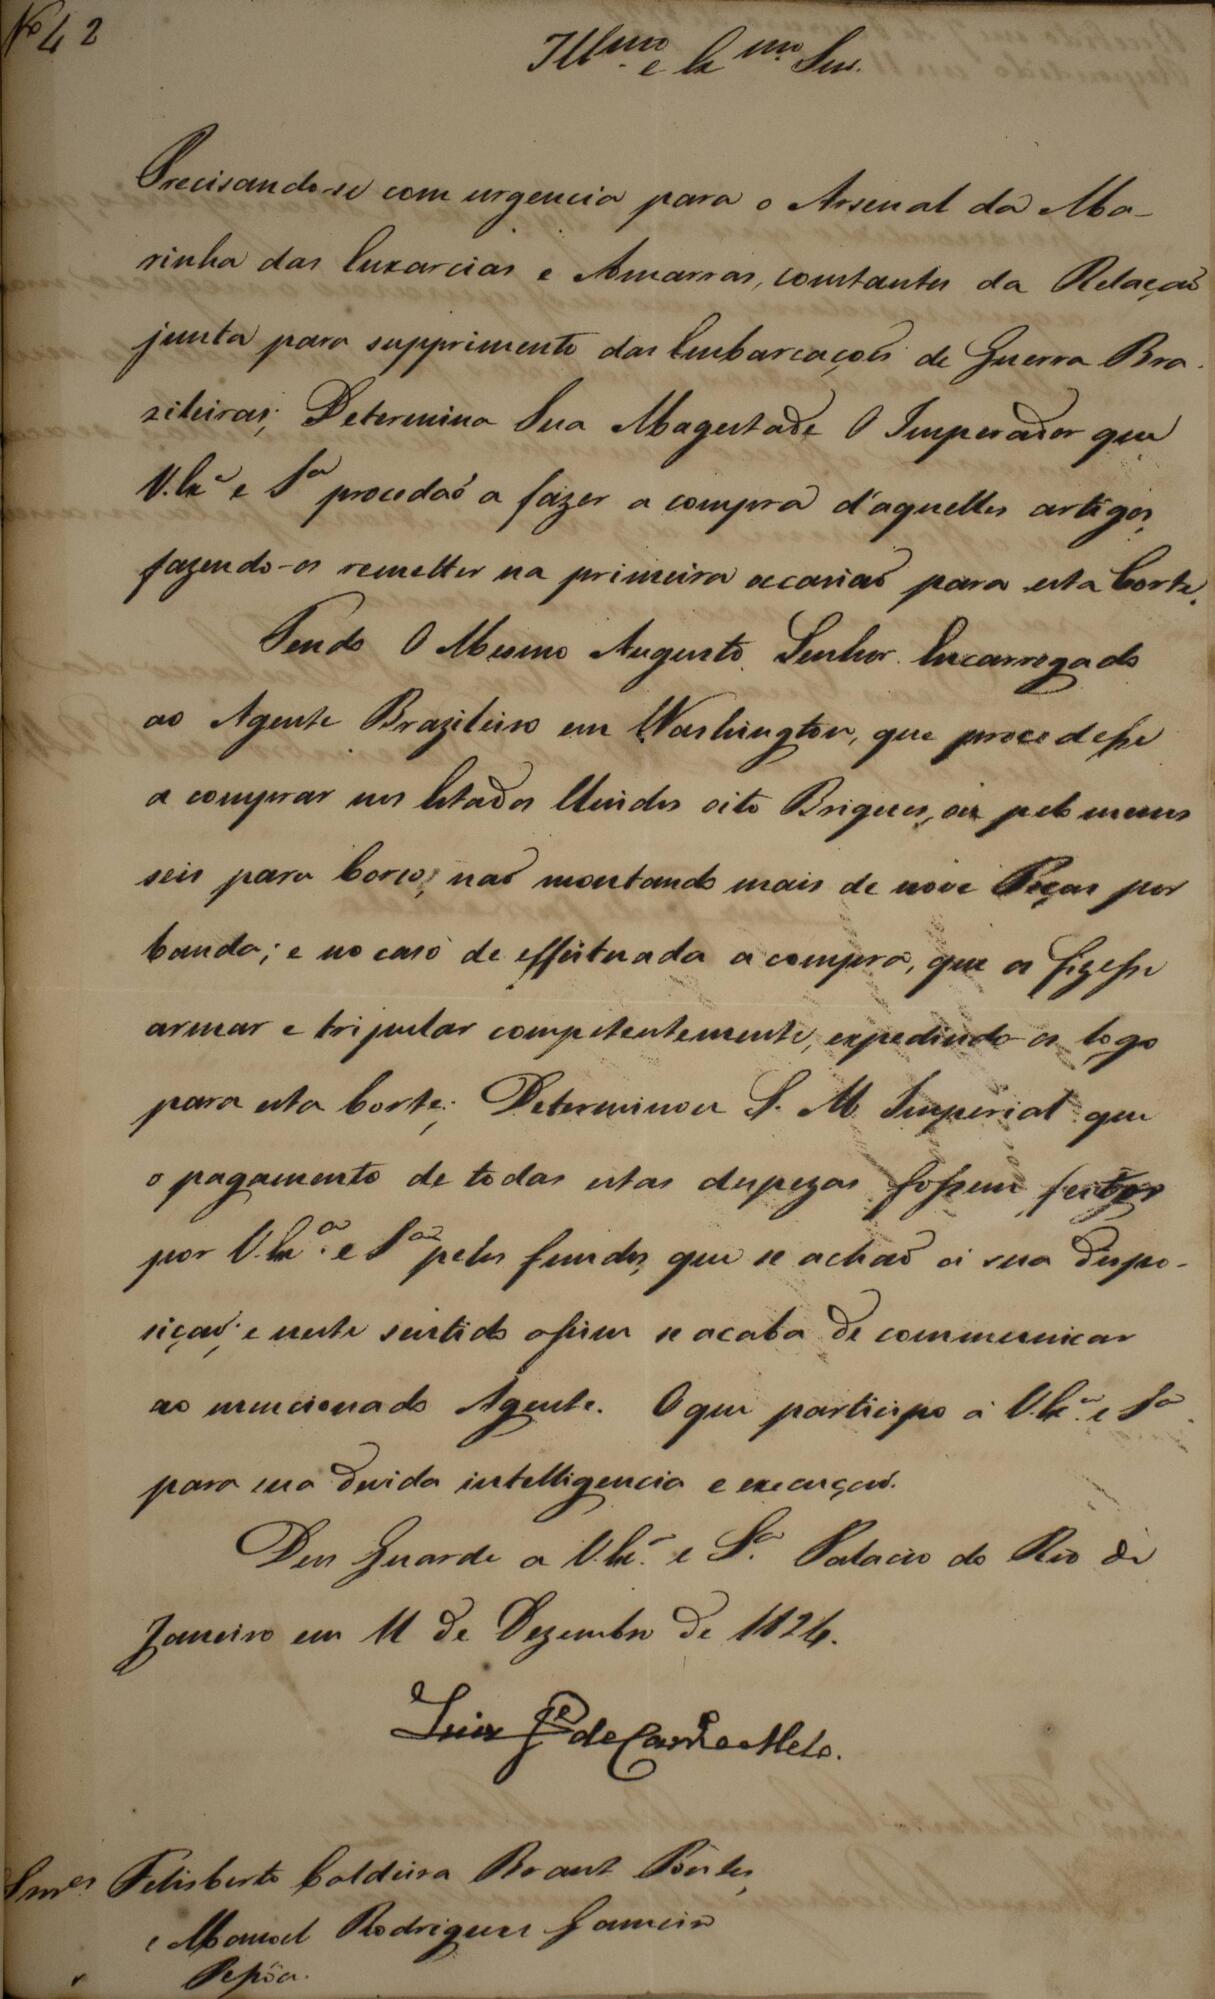 Nº 42
Illmo e Exmo Snr.
Precisando-se com urgencia para o Arsenal da Ma-
rinha das Enxarcias e Amarras, constantes da Relaçaõ
junta para supprimento das Embarcaçoẽs de Guerra Bra-
zileiras; Determina Sua Magestade O Imperador que
V. Exª e Sª procedaõ a fazer a compra d'aquelles artigos,
fazendo-os remetter na primeira occasiaõ para esta Corte.
Tendo O Mesmo Augusto Senhor Encarregado
ao Agente Brazileiro em Washington, que procedesse
a comprar nos Estados Unidos oito Brigues, ou pelo menos
seis para Corso, naõ montando mais de nove Peças por
banda; e no caso de effeituada a compra, que os fizesse
armar e tripular competentemente, expedindo-os logo
para esta Corte; Determinou S. M. Imperial que
o pagamento de todas estas despezas fossem feitas
por V. Exª e Sª pelos fundos, que se achaõ á sua dispo-
siçaõ; e neste sentido assim se acaba de communicar
ao mencionado Agente. O que participo á V. Exª e Sª
para sua devida intelligencia e execuçaõ.
Deos Guarde a V. Exª e Sª. Palacio do Rio de
Janeiro em 11 de Dezembro de 1824.
Luiz Jé de Carvo e Mello.
Snres Felisberto Caldeira Brant Pontes,
e Manoel Rodrigues Gameiro
Pessôa.